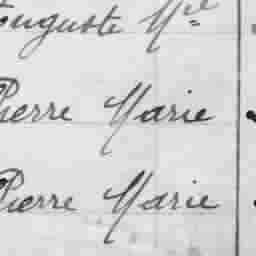 Auguste Mel
Pierre Marie
Pierre Marie